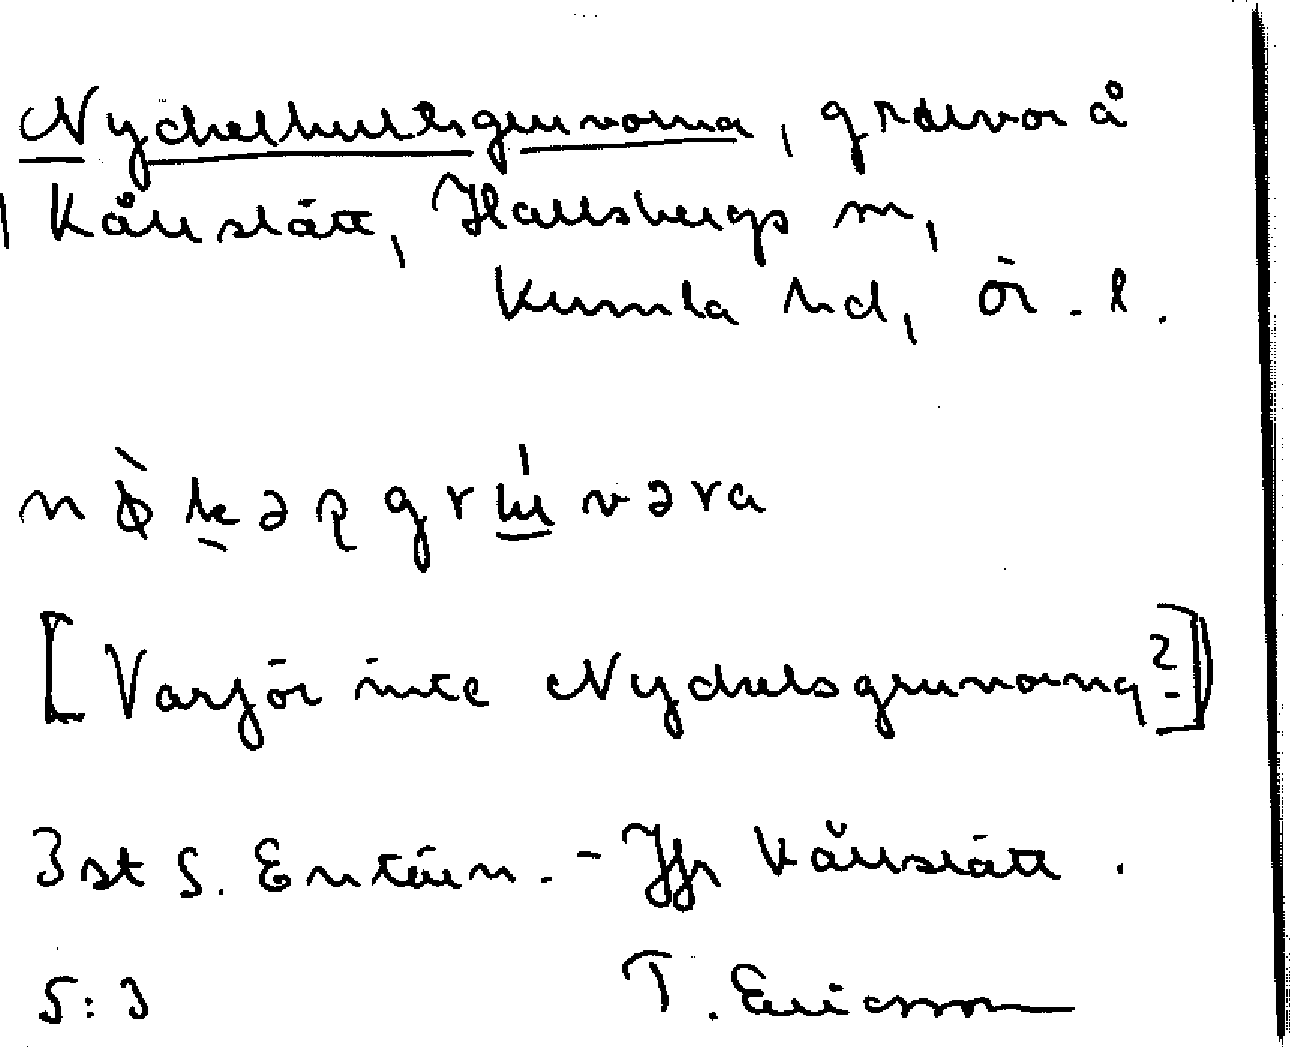 Nyckelhultsgruvorna, gruvor å
Kårstätt, Hallsbergs sn,
Kumla hd, Ör. l.
[Varför inte Nyckelsgruvorna?]
3 st S. Entén. - Jfr Kårstätt.
5:3 T. Ericsson